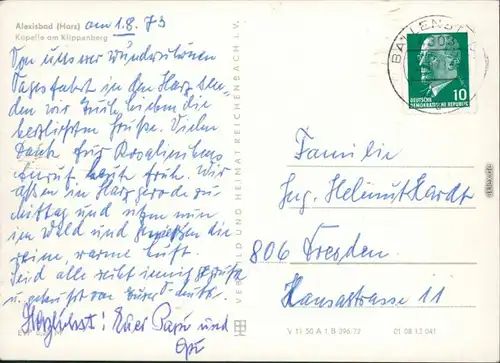 Alexisbad (Harz)
Kapelle am Klippenberg
am 1.8.73
Von unserer wunderschönen
Tagesfahrt in den Harz sen-
den wir Euch, Lieben die
herzlichsten Grüße. Vielen
Dank für Rosalinchens
Anruf heute früh. Wir
aßen in Harzgerode zu
Mittag und sitzen nun
im Wald und genießen die
reine, warme Luft.
Seid alle recht innig gegrüßt
u. geküsst von Eurer
Herzlichst! Euer Papa und
Opi
VERLAG BILD UND HEIMAT REICHENBACH i. V.
BALLENST
10
DEUTSCHE
DEMOKRATISCHE REPUBLIK
Familie
Ing. Helmut Hardt
806 Dresden
Hansastrasse 11
V 11 50 A 1 B 396/72
01 08 13 041